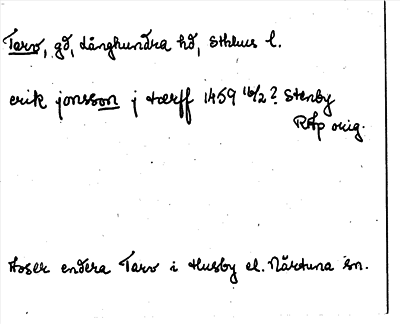 Tarv, gd, Långhundra hd, Sthlms l.
erik jonsson j tærff 1459 16/2? Stenby
RAp orig.
Avser endera Tarv i Husby el. Närtuna sn.